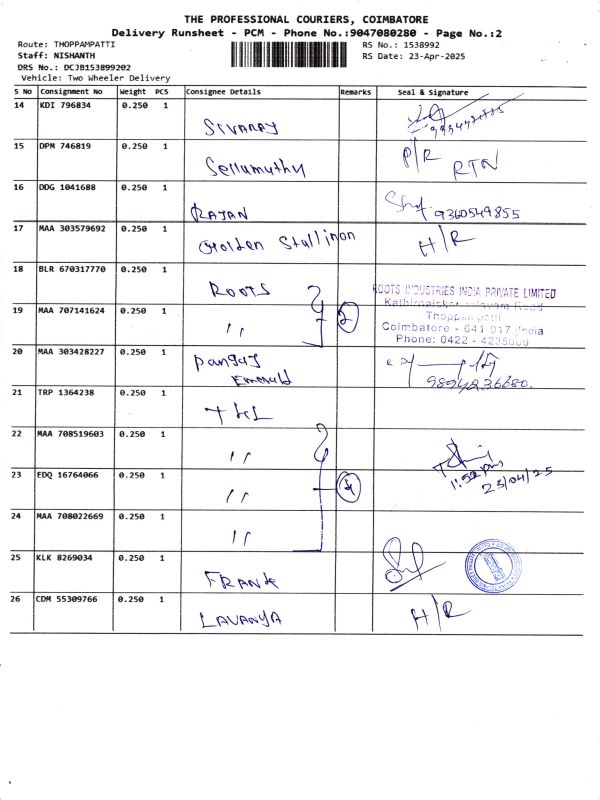 THE PROFESSIONAL COURIERS, COIMBATORE
Delivery Runsheet - PCM - Phone No.:9047080280 - Page No.:2
Route: THOPPAMPATTI RS No.: 1538992
Staff: NISHANTH RS Date: 23-Apr-2025
DRS No.: DCJB153899202
Vehicle: Two Wheeler Delivery
S No Consignment No Weight PCS Consignee Details Remarks Seal & Signature
14 KDI 796834 0.250 1 SIVARAY
15 DPM 746819 0.250 1 Sellamuthu P/R RTN
16 DDG 1041688 0.250 1 RAJAN 9360549855
17 MAA 303579692 0.250 1 Golden Stallinon H/R
18 BLR 670317770 0.250 1 ROOTS
ROOTS INDUSTRIES INDIA PRIVATE LIMITED
19 MAA 707141624 0.250 1 " 2
Thoppampatti
Coimbatore - 641 017 India
Phone: 0422 - 4235000
20 MAA 303428227 0.250 1 Pangaj
Emerald 9894236680.
21 TRP 1364238 0.250 1 TKL
22 MAA 708519603 0.250 1 "
1:52 pm
23/04/25
23 EDQ 16764066 0.250 1 " 4
24 MAA 708022669 0.250 1 "
25 KLK 8269034 0.250 1 FRANK
26 CDM 55309766 0.250 1 LAVANYA H/R